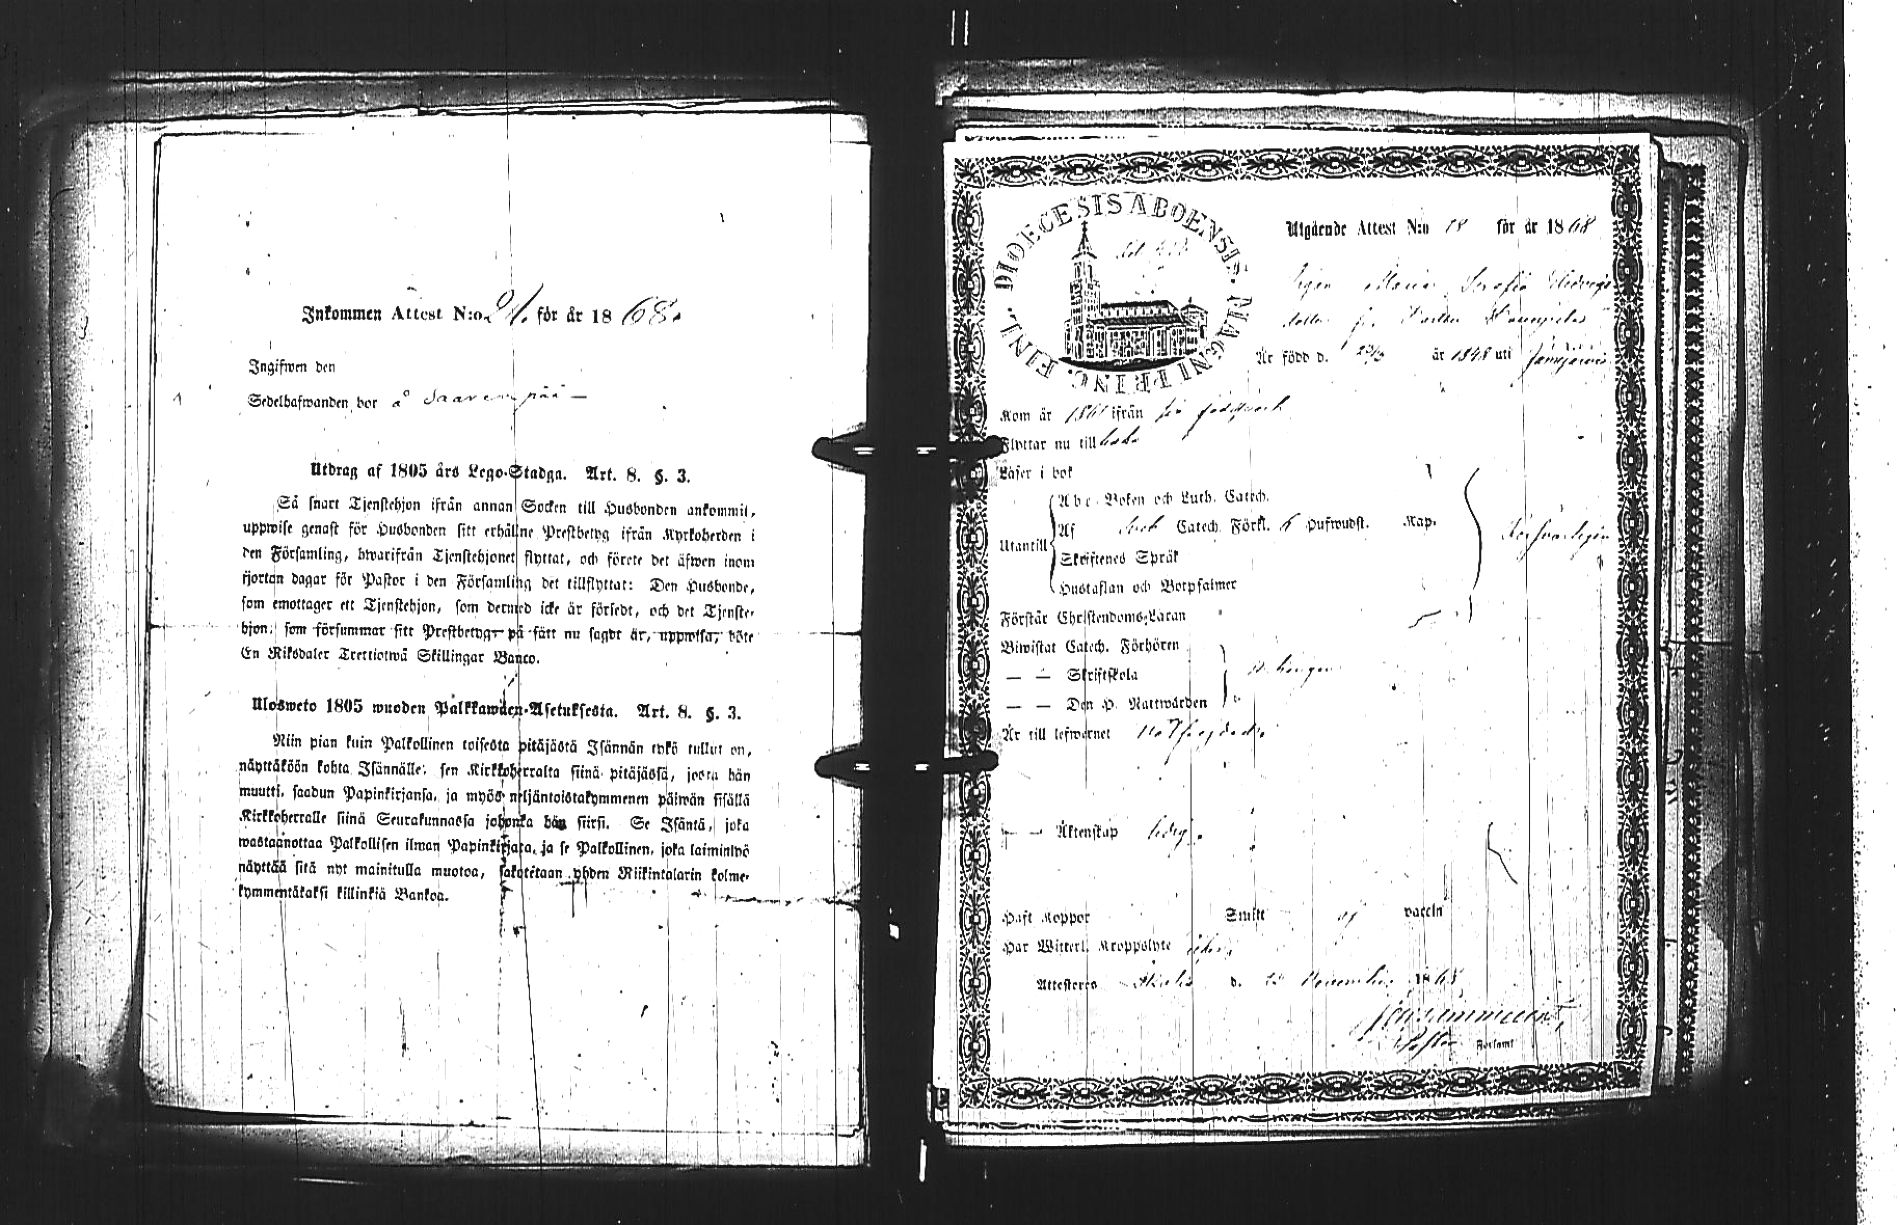 Inkommen Attest N:o 21. för år 1868.
Ingifwen den
Sedelhafwanden bor å Saarenpää –
Utdrag af 1805 års Lego-Stadga. Art. 8. §. 3.
Så snart Tjenstehjon ifrån annan Socken till Husbonden ankommit,
uppwise genast för Husbonden sitt erhållne Prestbetyg ifrån Kyrkoherden i
den Församling, hwarifrån Tjenstehjonet flyttat, och förete det äfwen inom
fjortan dagar för Pastor i den Församling det tillflyttat: Den Husbonde,
som emottager ett Tjenstehjon, som dermed icke är försedt, och det Tjenste-
hjon, som försummar sitt Prestbetyg på sätt nu sagdt är, uppwisa, böte
En Riksdaler Trettiotwå Skillingar Banco.
Ulosweto 1805 wuoden Palkkawäen-Asetuksesta. Art. 8. §. 3.
Niin pian kuin Palkollinen toisesta pitäjästä Isännän tykö tullut on,
näyttäköön kohta Isännälle, sen Kirkkoherralta siinä pitäjässä, josta hän
muutti, saadun Papinkirjansa, ja myös neljäntoistakymmenen päiwän sisällä
Kirkkoherralle siinä Seurakunnassa johonka hän siirsi. Se Isäntä, joka
wastaanottaa Palkollisen ilman Papinkirjata, ja se Palkollinen, joka laiminlyö
näyttää sitä nyt mainitulla muotoa, sakotetaan yhden Riikintalarin kolme-
kymmentäkaksi killinkiä Bankoa.
DIOECESIS ABOENSIS. MAGNI PRINC. FINL.
Utgående Attest N:o 18 för år 1868
Pigan Maria Serafia Hedvigs
dotter fr.
Är född d. 23/3 år 1848 uti Jämijärvi
Kom år 1861 ifrån sin födelseort
Flyttar nu till
Läser i bok
Abc-Boken och Luth. Catech.
Utantill Af Catech. Förkl. 6 Hufwudst. Kap.
Skriftenes Språk
Hustaflan och Botpsalmer
Förstår Christendoms-Läran
Biwistat Catech. Förhören
— — Skriftskola
— — Den H. Nattwarden
Är till lefwernet
— — Äktenskap ledig
Haft Koppor Smitt af vaccin
Har Witterl. Kroppslyte
Attesteras d. 23 November 1868
Pastor Församl